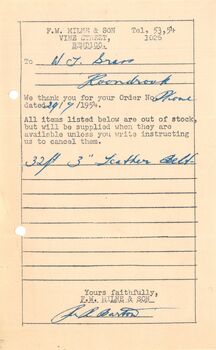 F.W. MILNE & SON Tel. 53,54
VINE STREET, 1026
BENDIGO.
To N J Grass
Koondrook
We thank you for your Order No. Phone
dated 29/9/1954.
All items listed below are out of stock,
but will be supplied when they are
available unless you write instructing
us to cancel them.
32ft 3" Leather Belt
Yours faithfully,
F.W. MILNE & SON